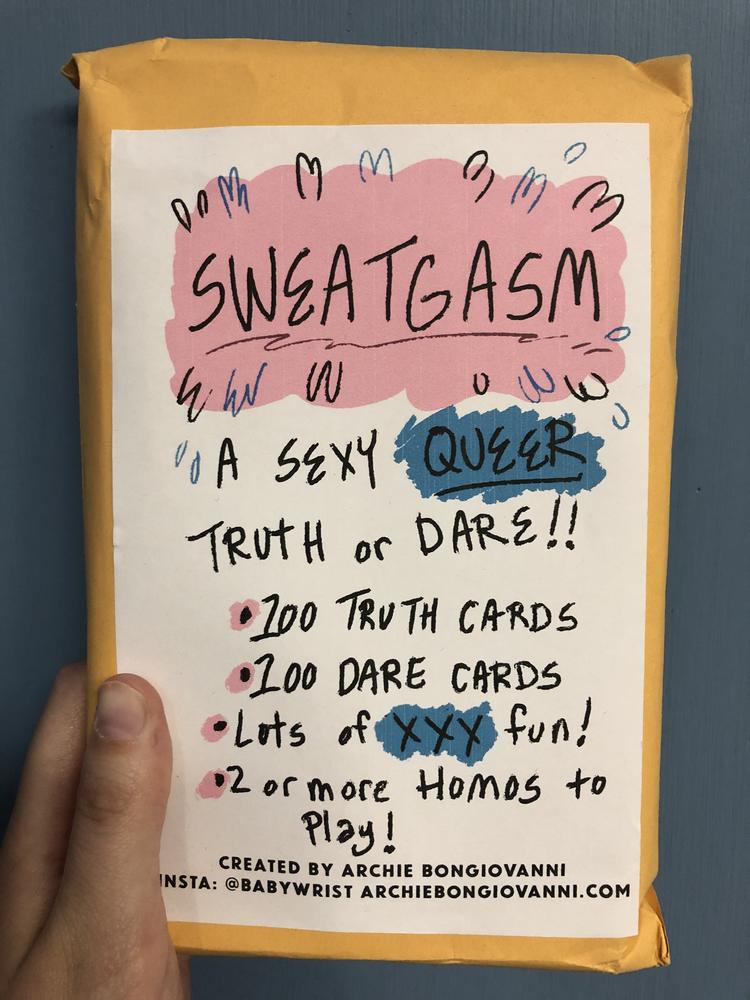 SWEATGASM
A SEXY QUEER
TRUTH or DARE!!
•100 TRUTH CARDS
•100 DARE CARDS
•Lots of XXX fun!
•2 or more Homos to
Play!
CREATED BY ARCHIE BONGIOVANNI
INSTA: @BABYWRIST ARCHIEBONGIOVANNI.COM